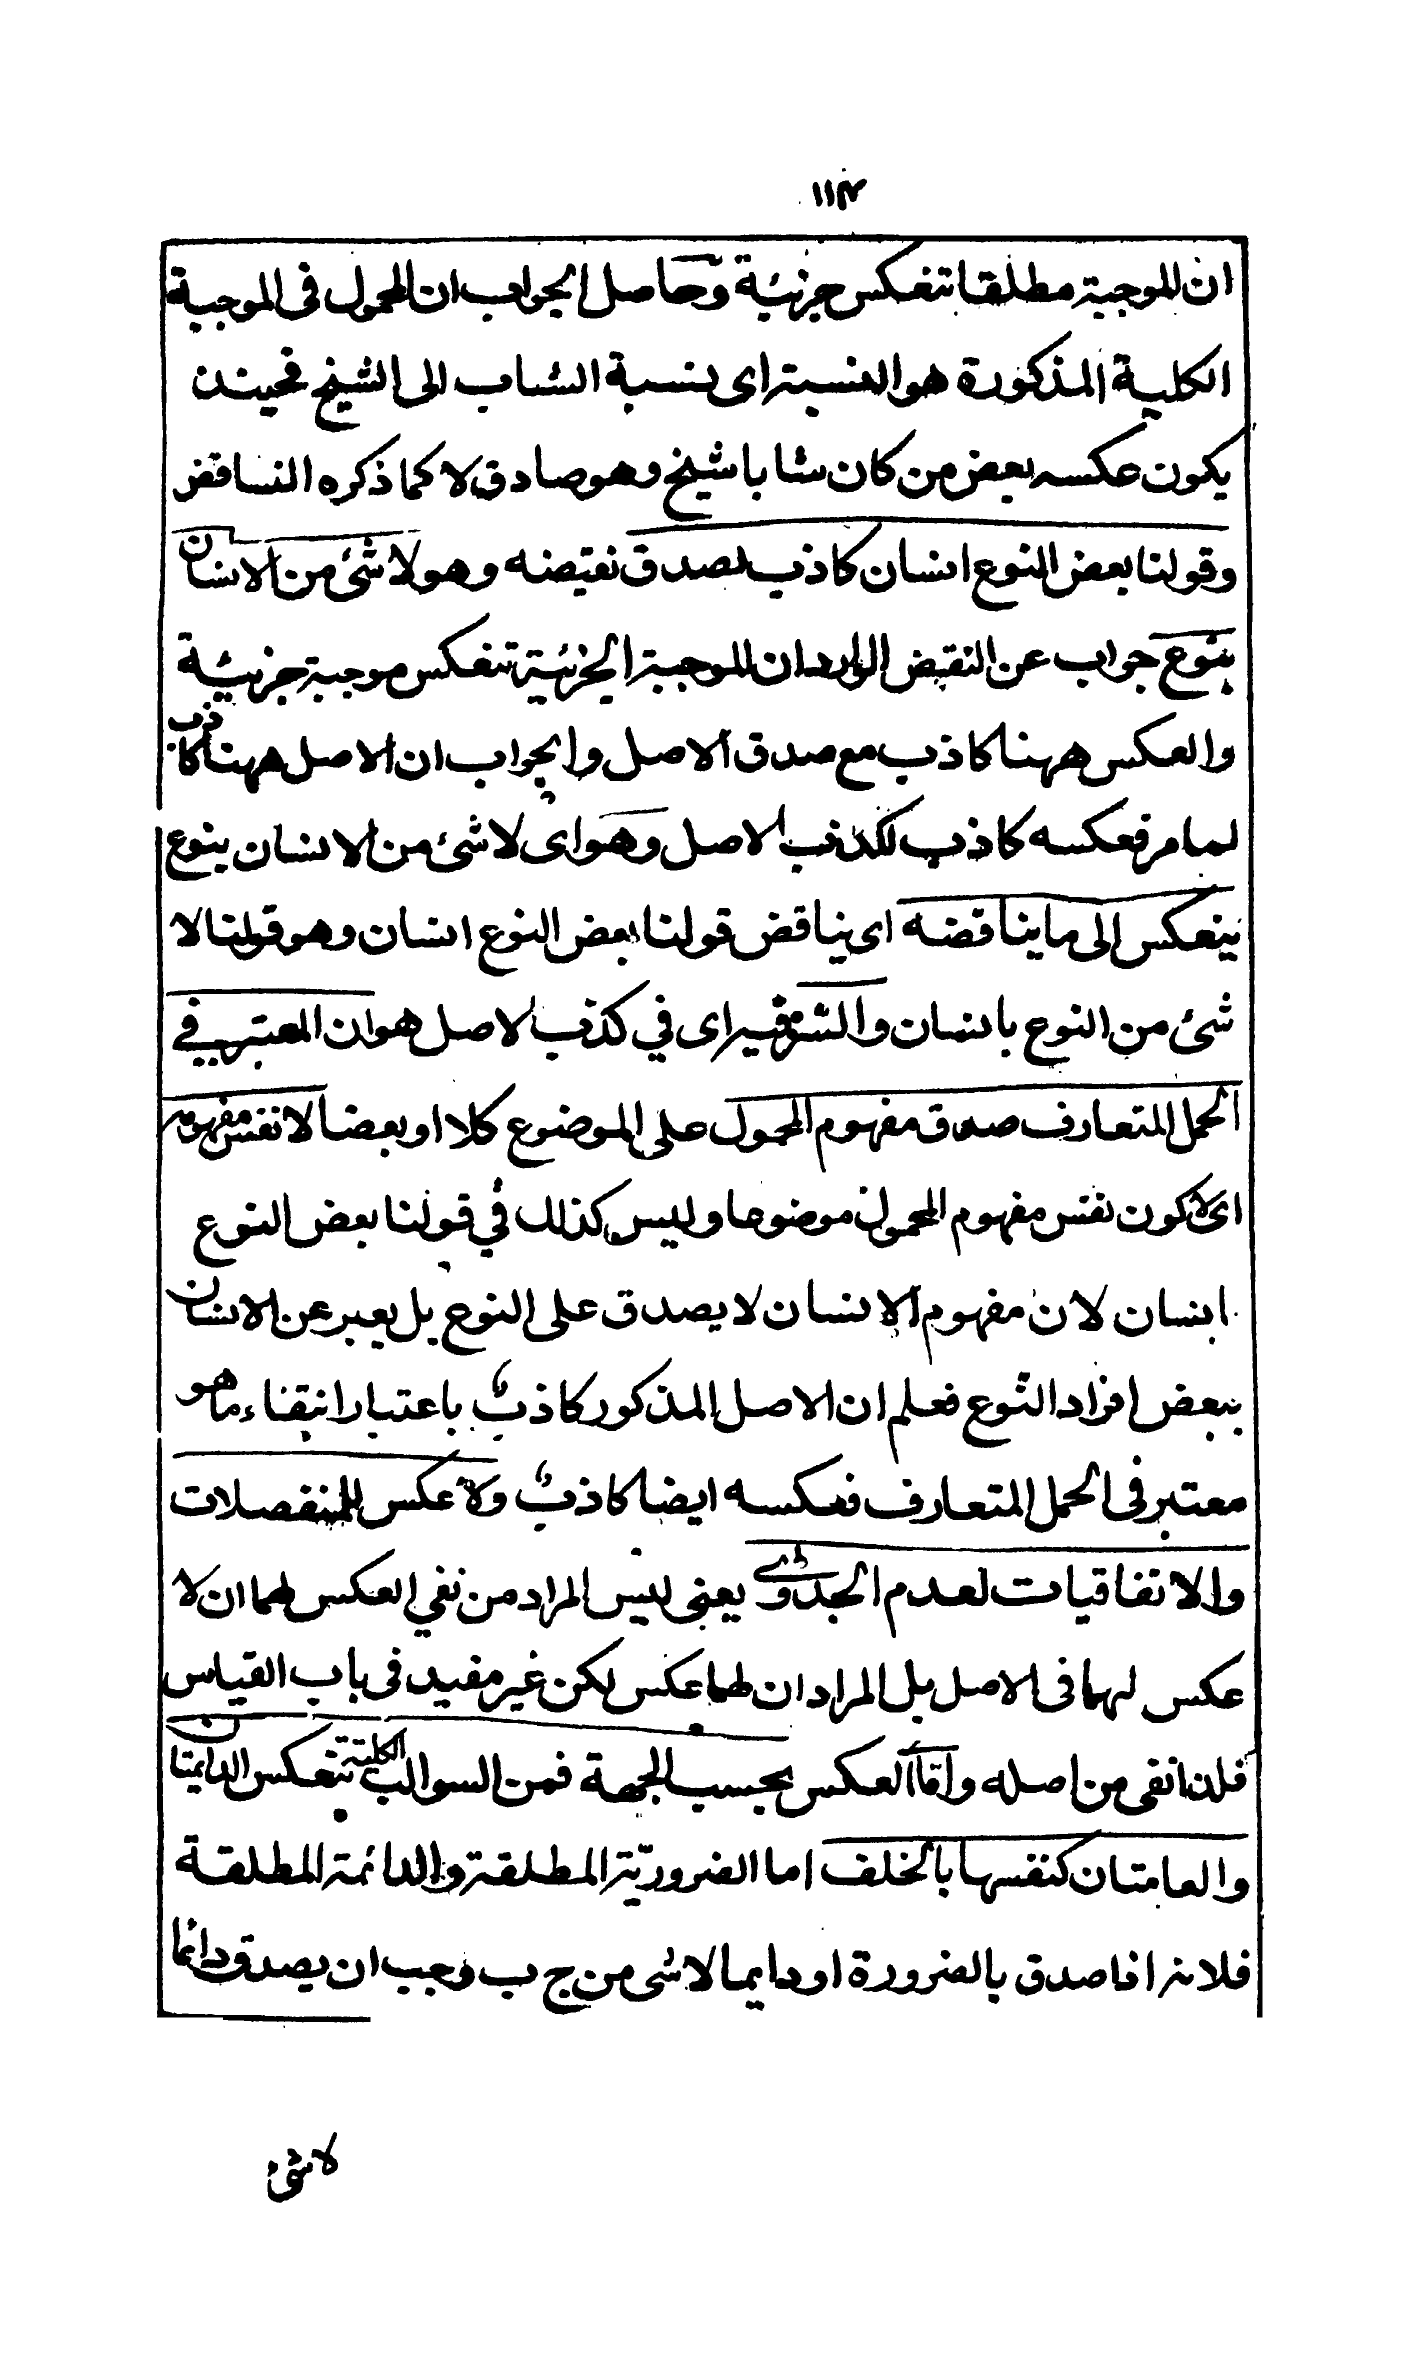 ١١٤
ان الموجبة مطلقا تنعكس جزئية وحاصل الجواب ان المحمول فى الموجبة
الكلية المذكورة هو النسبة اى نسبة الشاب الى الشيخ فحينئذ
يكون عكسه بعض من كان شابا شيخ وهو صادق لا كما ذكره الناقض
وقولنا بعض النوع انسان كاذب لصدق نقيضه وهو لا شئ من الانسان
بنوع جواب عن النقض الوارد ان الموجبة الجزئية تنعكس موجبة جزئية
والعكس ههنا كاذب مع صدق الاصل والجواب ان الاصل ههنا كاذب
لما مر فعكسه كاذب لكذب الاصل وهو اى لا شئ من الانسان بنوع
ينعكس الى ما يناقضه اى يناقض قولنا بعض النوع انسان وهو قولنا لا
شئ من النوع بانسان والسر فيه اى في كذب الاصل هو ان المعتبر في
الحمل المتعارف صدق مفهوم المحمول على الموضوع كلا او بعضا لا نفس مفهومه
اى لا كون نفس مفهوم المحمول موضوعا وليس كذلك في قولنا بعض النوع
انسان لان مفهوم الانسان لا يصدق على النوع بل يعبر عن الانسان
ببعض افراد النوع فعلم ان الاصل المذكور كاذب باعتبار انتفاء ما هو
معتبر فى الحمل المتعارف فعكسه ايضا كاذب ولا عكس للمنفصلات
والاتفاقيات لعدم الجدوى يعنى ليس المراد من نفي العكس لهما ان لا
عكس لهما فى الاصل بل المراد ان لهما عكس لكن غير مفيد فى باب القياس
فلذا نفى من اصله واما العكس بحسب الجهة فمن السوالب الكلية تنعكس الدائمتان
والعامتان كنفسها بالخلف اما الضرورية المطلقة والدائمة المطلقة
فلانه اذا صدق بالضرورة او دايما لا شى من ج ب وجب ان يصدق دائما
لا شئ